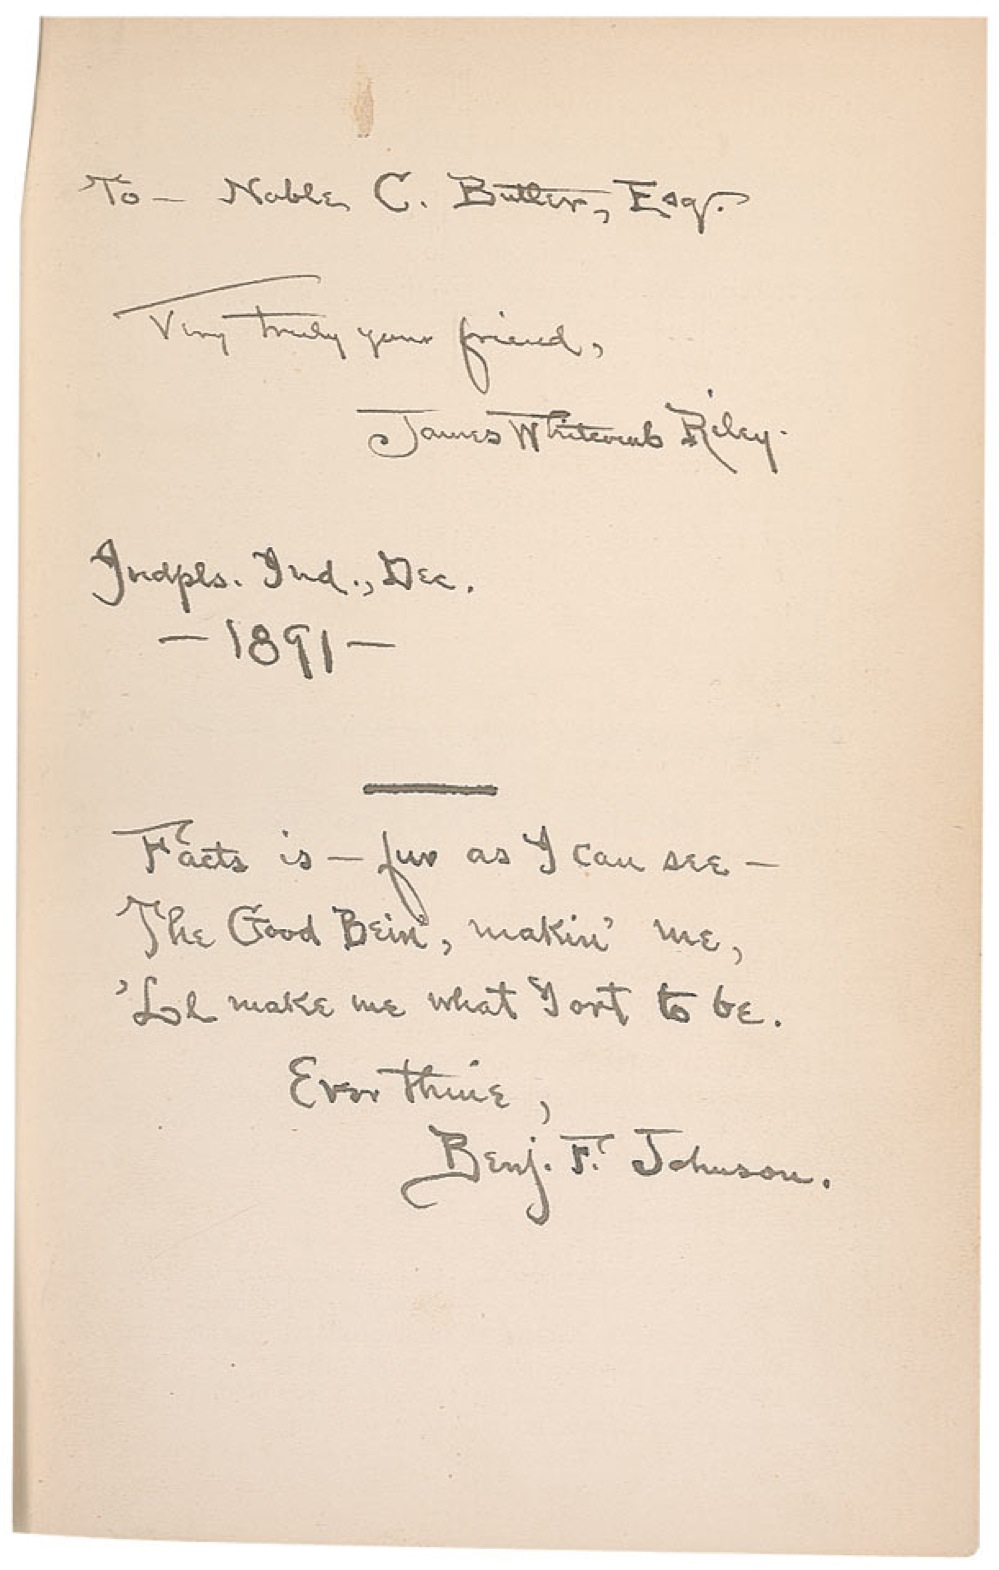 To — Noble C. Butler, Esq.
Very truly your friend,
James Whitcomb Riley.
Indpls. Ind., Dec.
— 1891 —
Facts is — fur as I can see —
The Good Bein', makin' me,
'Ll make me what I ort to be.
Ever thine,
Benj. F. Johnson.